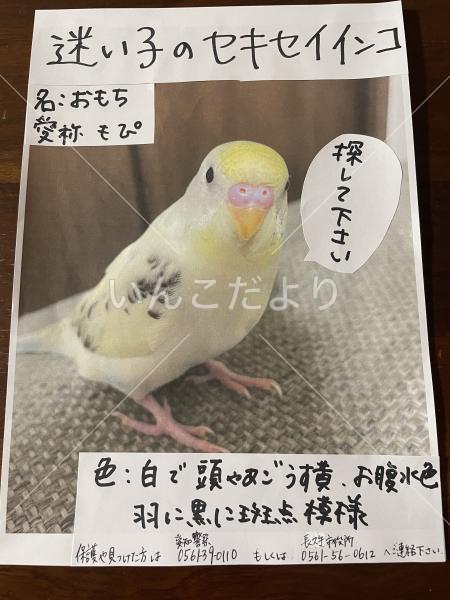 迷い子のセキセイインコ
名:おもち
愛称 もぴ
探して下さい
いんこだより
色:白で頭やあごうす黄、お腹水色
羽に黒に斑点模様
愛知警察 長久手市役所
保護や見つけた方は 0561390110 もしくは 0561-56-0612 へ連絡下さい